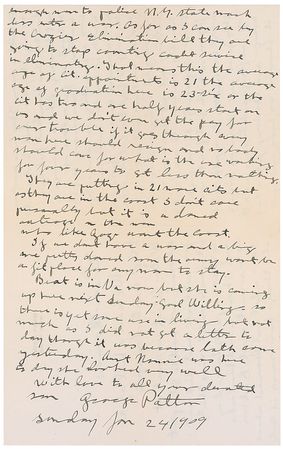 enough men to police N.Y. state much
less enter a war. As far as I can see by
the Crozier Elimination bill they are
going to stop counting cadet service
in eliminating. That means this the average
age of cit. appointments is 21 the average
age of graduation here is 23-2/12 or the
cit has two and one half years start on
us and we don't even get the pay for
our trouble if it goes through every
man here should resign and no body
should come for what is the use working
for four years to get less than nothing.
They are putting in 21 more cits but
as they are in the coast I dont care
personally but it is a damed
outrage on the men
who like Gage want the coast.
If we dont have a war and a big
one pretty damed soon the army wont be
a fit place for any man to stay.
Beat is in Va now but she is coming
up here next Sunday God Willing so
there is yet some use in living but not
much as I did not get a letter to
day though it was because last came
yesterday. Aunt Nannie was here
to day she looked very well
With love to all your devoted
son George Patton
Sunday Jan 24/1909